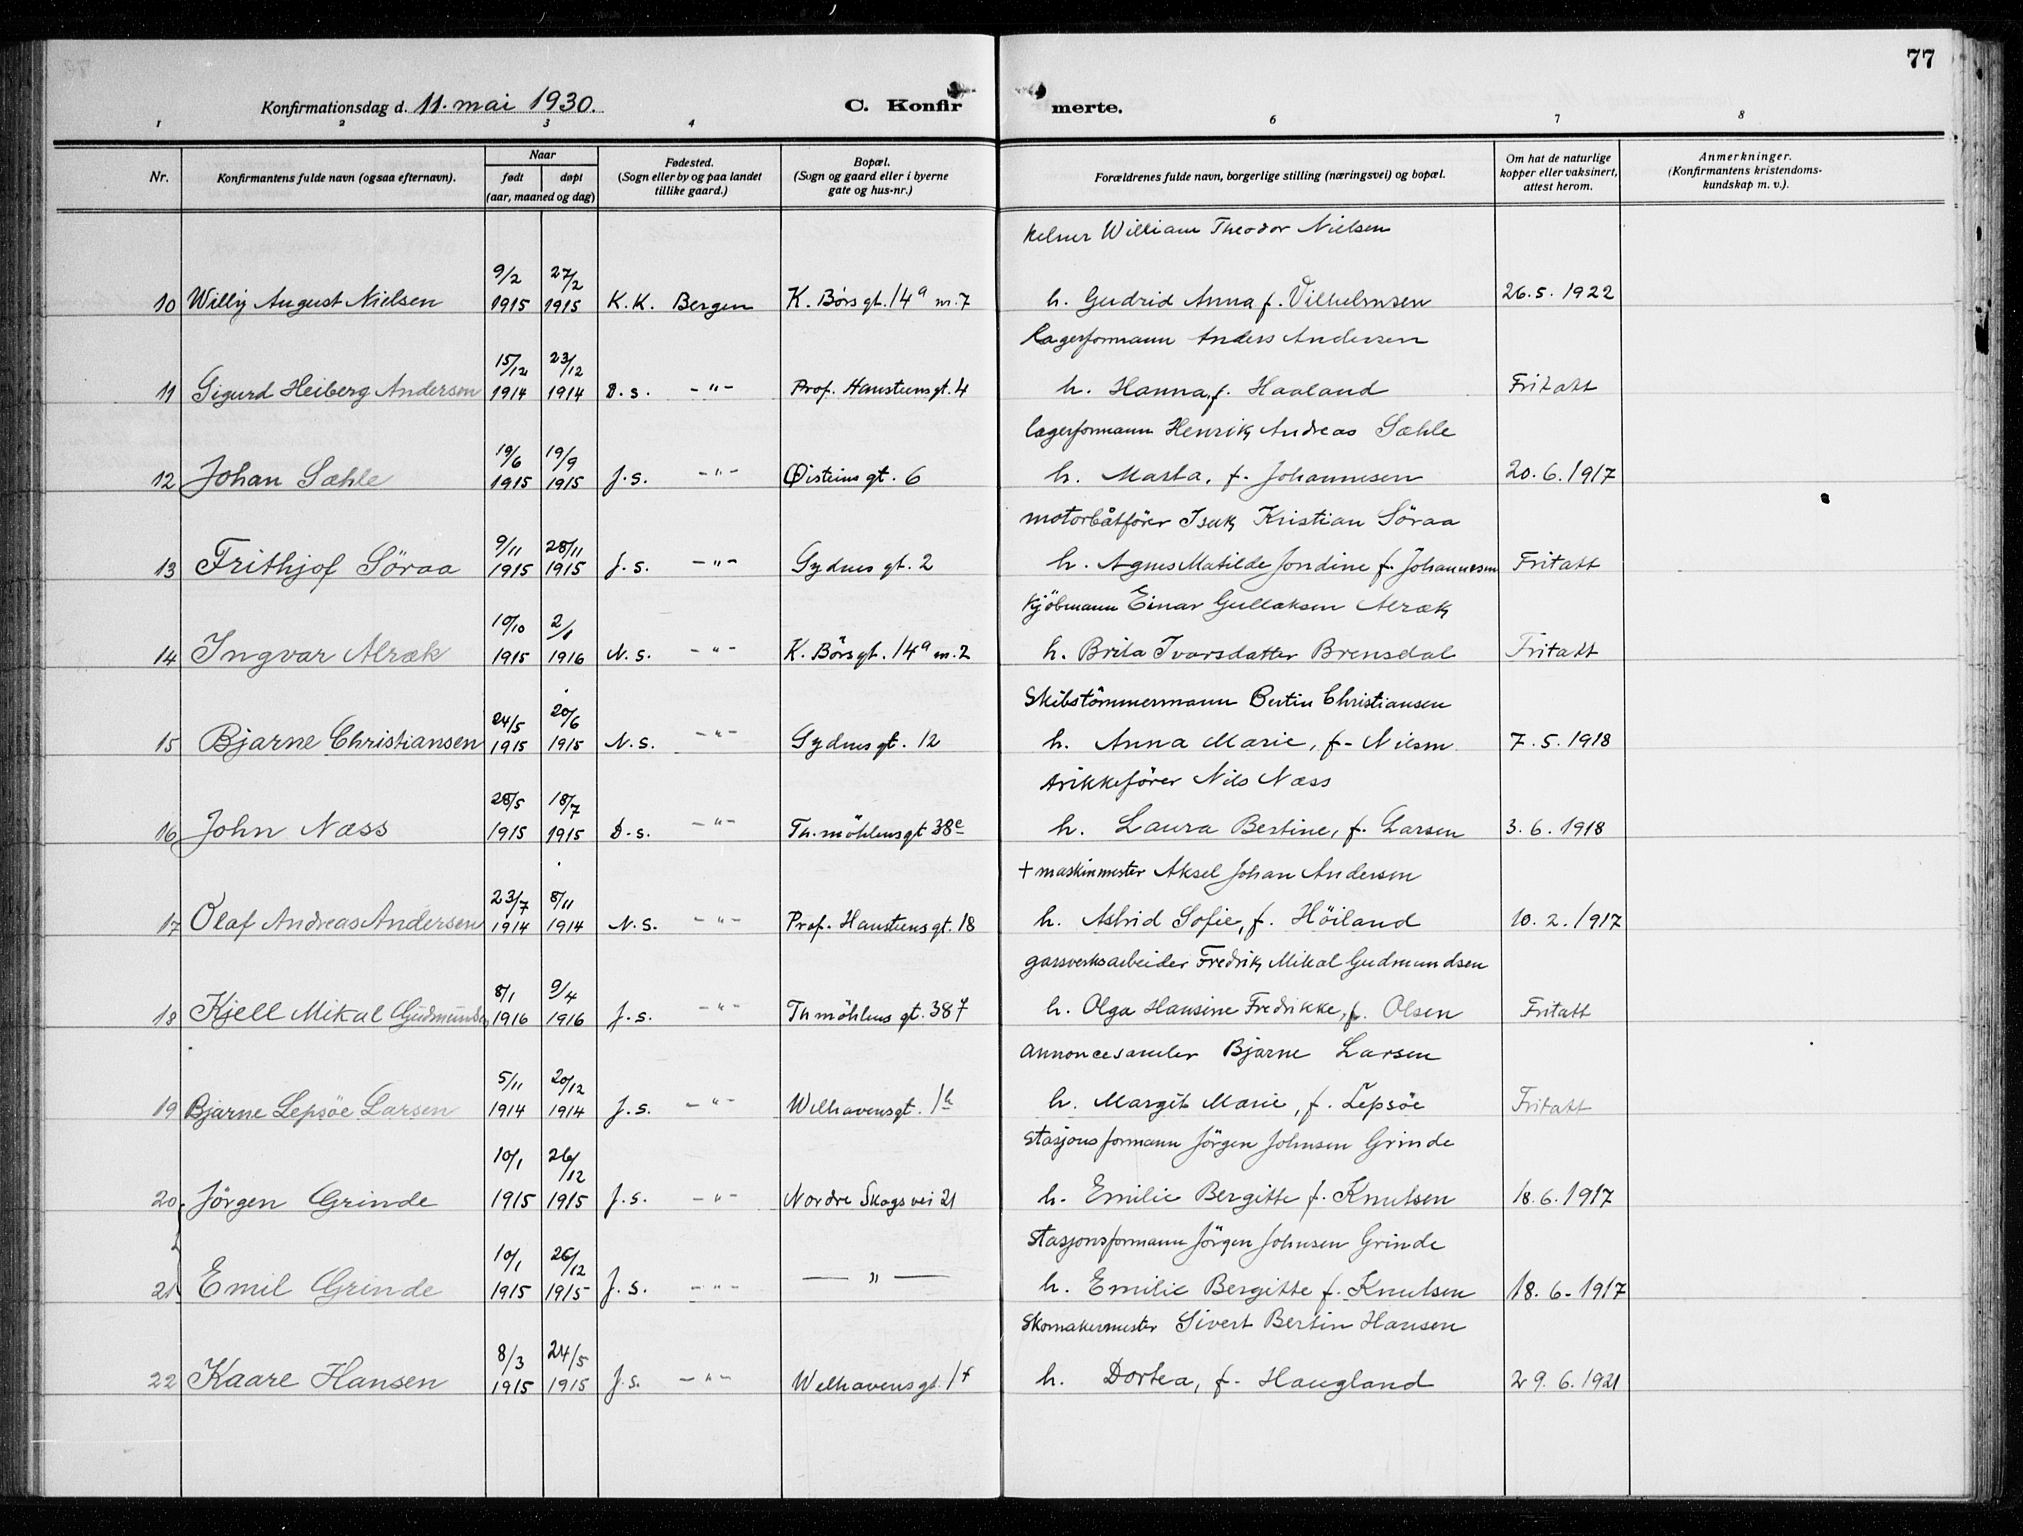 77
Konfirmationsdag d. 11. mai 1930. C. Konfirmerte.
1 2 3 4 6 7 8
Nr. Konfirmantens fulde navn (ogsaa efternavn). Naar født døpt (aar, maaned og dag) Fødested. (Sogn eller by og paa landet tillike gaard.) Bopæl. (Sogn og gaard eller i byerne gate og hus-nr.) Forældrenes fulde navn, borgerlige stilling (næringsvei) og bopæl. Om hat de naturlige kopper eller vaksinert, attest herom. Anmerkninger. (Konfirmantens kristendomskundskap m. v.).
kelner William Theodor Nielsen
9/2 27/2
10 Willy August Nielsen 1915 1915 K.K. Bergen K. Børs gt. 14a m. 7 h. Gudrid Anna f. Vilhelmsen 26.5.1922
Lagerformann Anders Andersen
15/12 23/12
11 Sigurd Heiberg Andersen 1914 1914 D.s. -"- Prof. Hansteensgt. 4 h. Hanna, f. Haaland Fritatt
lagerformann Henrik Andreas Sæhle
19/6 19/9
12 Johan Sæhle 1915 1915 J.s. -"- Øisteins gt. 6 h. Marta, f. Johannesen 20.6.1917
motorbåtförer Isak Kristian Söraa
9/11 28/11
13 Frithjof Söraa 1915 1915 J.s. -"- Gydnes gt. 2 h. Agnes Matilde Jondine f. Johannesen Fritatt
Kjöbmann Einar Gullaksen Alræk
10/10 2/1
14 Ingvar Alræk 1915 1916 N.s. -"- K. Børs gt. 14a m. 2 h. Brita Ivarsdatter Brensdal Fritatt
Skibstömmermann Bertin Christiansen
24/5 20/6
15 Bjarne Christiansen 1915 1915 N.s. -"- Gydnes gt. 12 h. Anna Marie, f. Nilsen 7.5.1918
trikkefører Nils Næss
28/5 18/7
16 John Næss 1915 1915 D.s. -"- Th. möhlensgt 38e h. Laura Bertine, f. Larsen 3.6.1918
+ maskinmester Aksel Johan Andersen
23/7 8/11
17 Olaf Andreas Andersen 1914 1914 N.s. -"- Prof. Hansteensgt. 18 h. Astrid Sofie, f. Höiland 10.2.1917
gassverksarbeider Fredrik Mikal Gudmundsen
8/1 9/4
18 Kjell Mikal Gudmundsen 1916 1916 J.s. -"- Th möhlens gt. 38 f h. Olga Hansine Fredrikke, f. Olsen Fritatt
Annoncesamler Bjarne Larsen
5/11 20/12
19 Bjarne Lepsöe Larsen 1914 1914 J.s. -"- Welhavensgt. 1h h. Margit Marie, f. Lepsöe Fritatt
Stasjonsformann Jörgen Johnsen Grinde
10/1 26/12
20 Jörgen Grinde 1915 1915 J.s. -"- Nordre Skogsvei 21 h. Emilie Bergitte f. Knutsen 18.6.1917
Stasjonsformann Jörgen Johnsen Grinde
10/1 26/12
21 Emil Grinde 1915 1915 J.s. -"- -"- h. Emilie Bergitte f. Knutsen 18.6-1917
Skomakermester Sivert Bertin Hansen
8/3 24/5
22 Kaare Hansen 1915 1915 J.s. -"- Welhavens gt. 1f h. Dortea, f. Haugland 29.6.1921